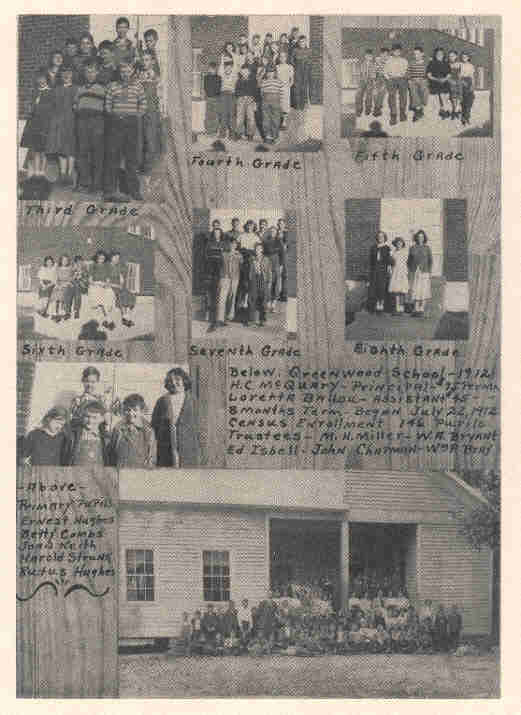 Third Grade
Fourth Grade
Fifth Grade
Sixth Grade
Seventh Grade
Eighth Grade
Below. Greenwood-School-1912
H.C. McQuary-Principal-
Loretta Ballou-Assistant 45-
8 months Term. Began July 22, 1912
Census Enrollment 146 Pupils
Trustees-M.H. Miller-W.A. Bryant
Ed Isbell-John Chatman-Wm P.
-Above-
Primary Pupils
Ernest Hughes
Betty Combs
Keith
Harold Strunk
Rufus Hughes